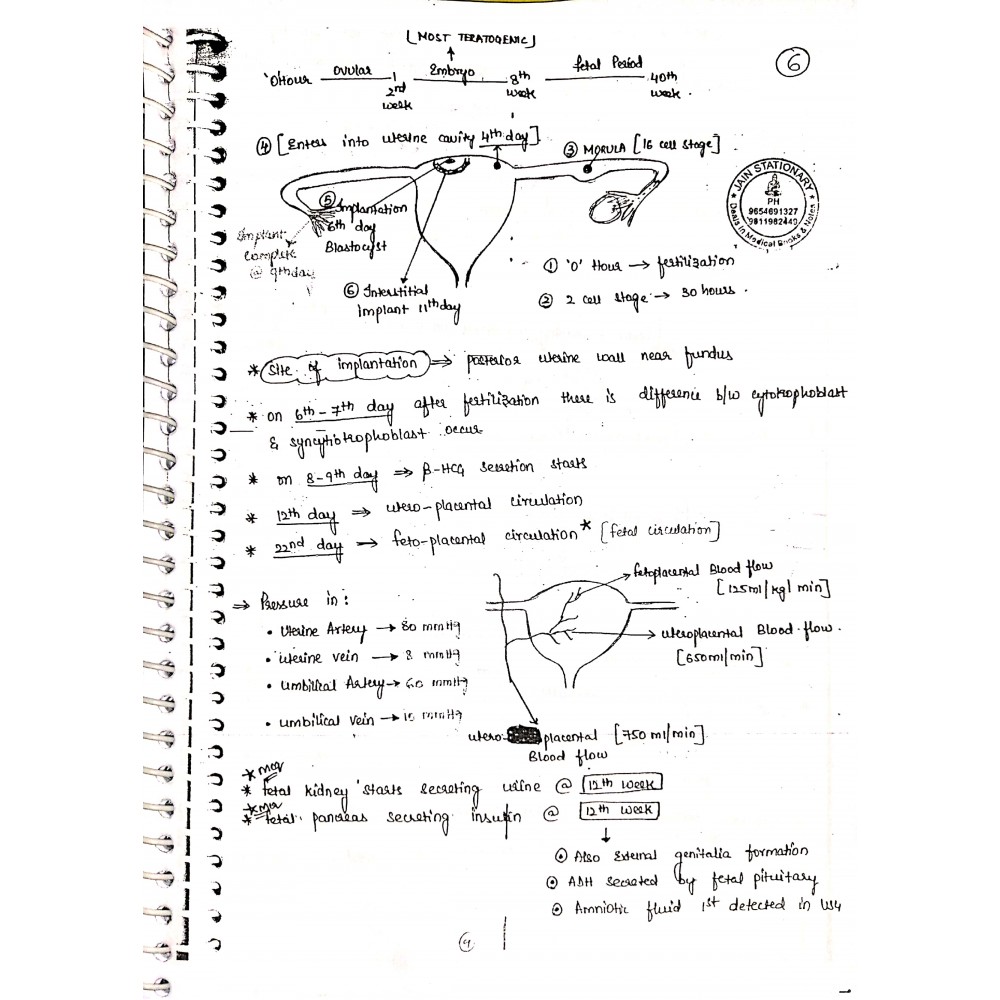 [MOST TERATOGENIC]
6
'0Hour ovular 2nd week Embryo 8th week fetal Period 40th week.
④ [Enters into uterine cavity 4th day]
③ MORULA [16 cell stage]
JAIN STATIONARY
PH
9654691327
9811982449
Deals in Medical Books & Notes
⑤ Implantation
6th day
Blastocyst
Implant
complete
@ 9th day
① '0' Hour → fertilization
② 2 cell stage → 30 hours.
⑥ Interstitial
implant 11th day
* Site of implantation ⇒ posterior uterine wall near fundus
* on 6th-7th day after fertilization there is difference b/w cytotrophoblast
& syncytiotrophoblast occur
* on 8-9th day ⇒ β-HCG secretion starts
* 12th day ⇒ utero-placental circulation
* 22nd day → feto-placental circulation* [fetal circulation]
fetoplacental Blood flow
[125ml/kg/min]
⇒ Pressure in:
• Uterine Artery → 80 mmHg
uteroplacental Blood flow.
[650ml/min]
• uterine vein → 8 mmHg
• umbilical Artery → 60 mmHg
• umbilical vein → mmHg
utero placental [750 ml/min]
Blood flow
* mcq
* fetal kidney starts secreting urine @ 12th week
* mcq
* fetal pancreas secreting insulin @ 12th week
⊙ Also External genitalia formation
⊙ ADH secreted by fetal pituitary
⊙ Amniotic fluid 1st detected in USG
9